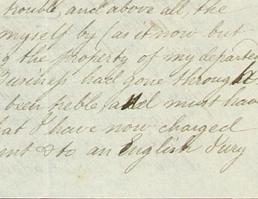 trouble, and above all, the
myself by (as it now but
the property of my departed
Business had gone through
been treble, and must have
that I have now charged
ent & to an English Jury